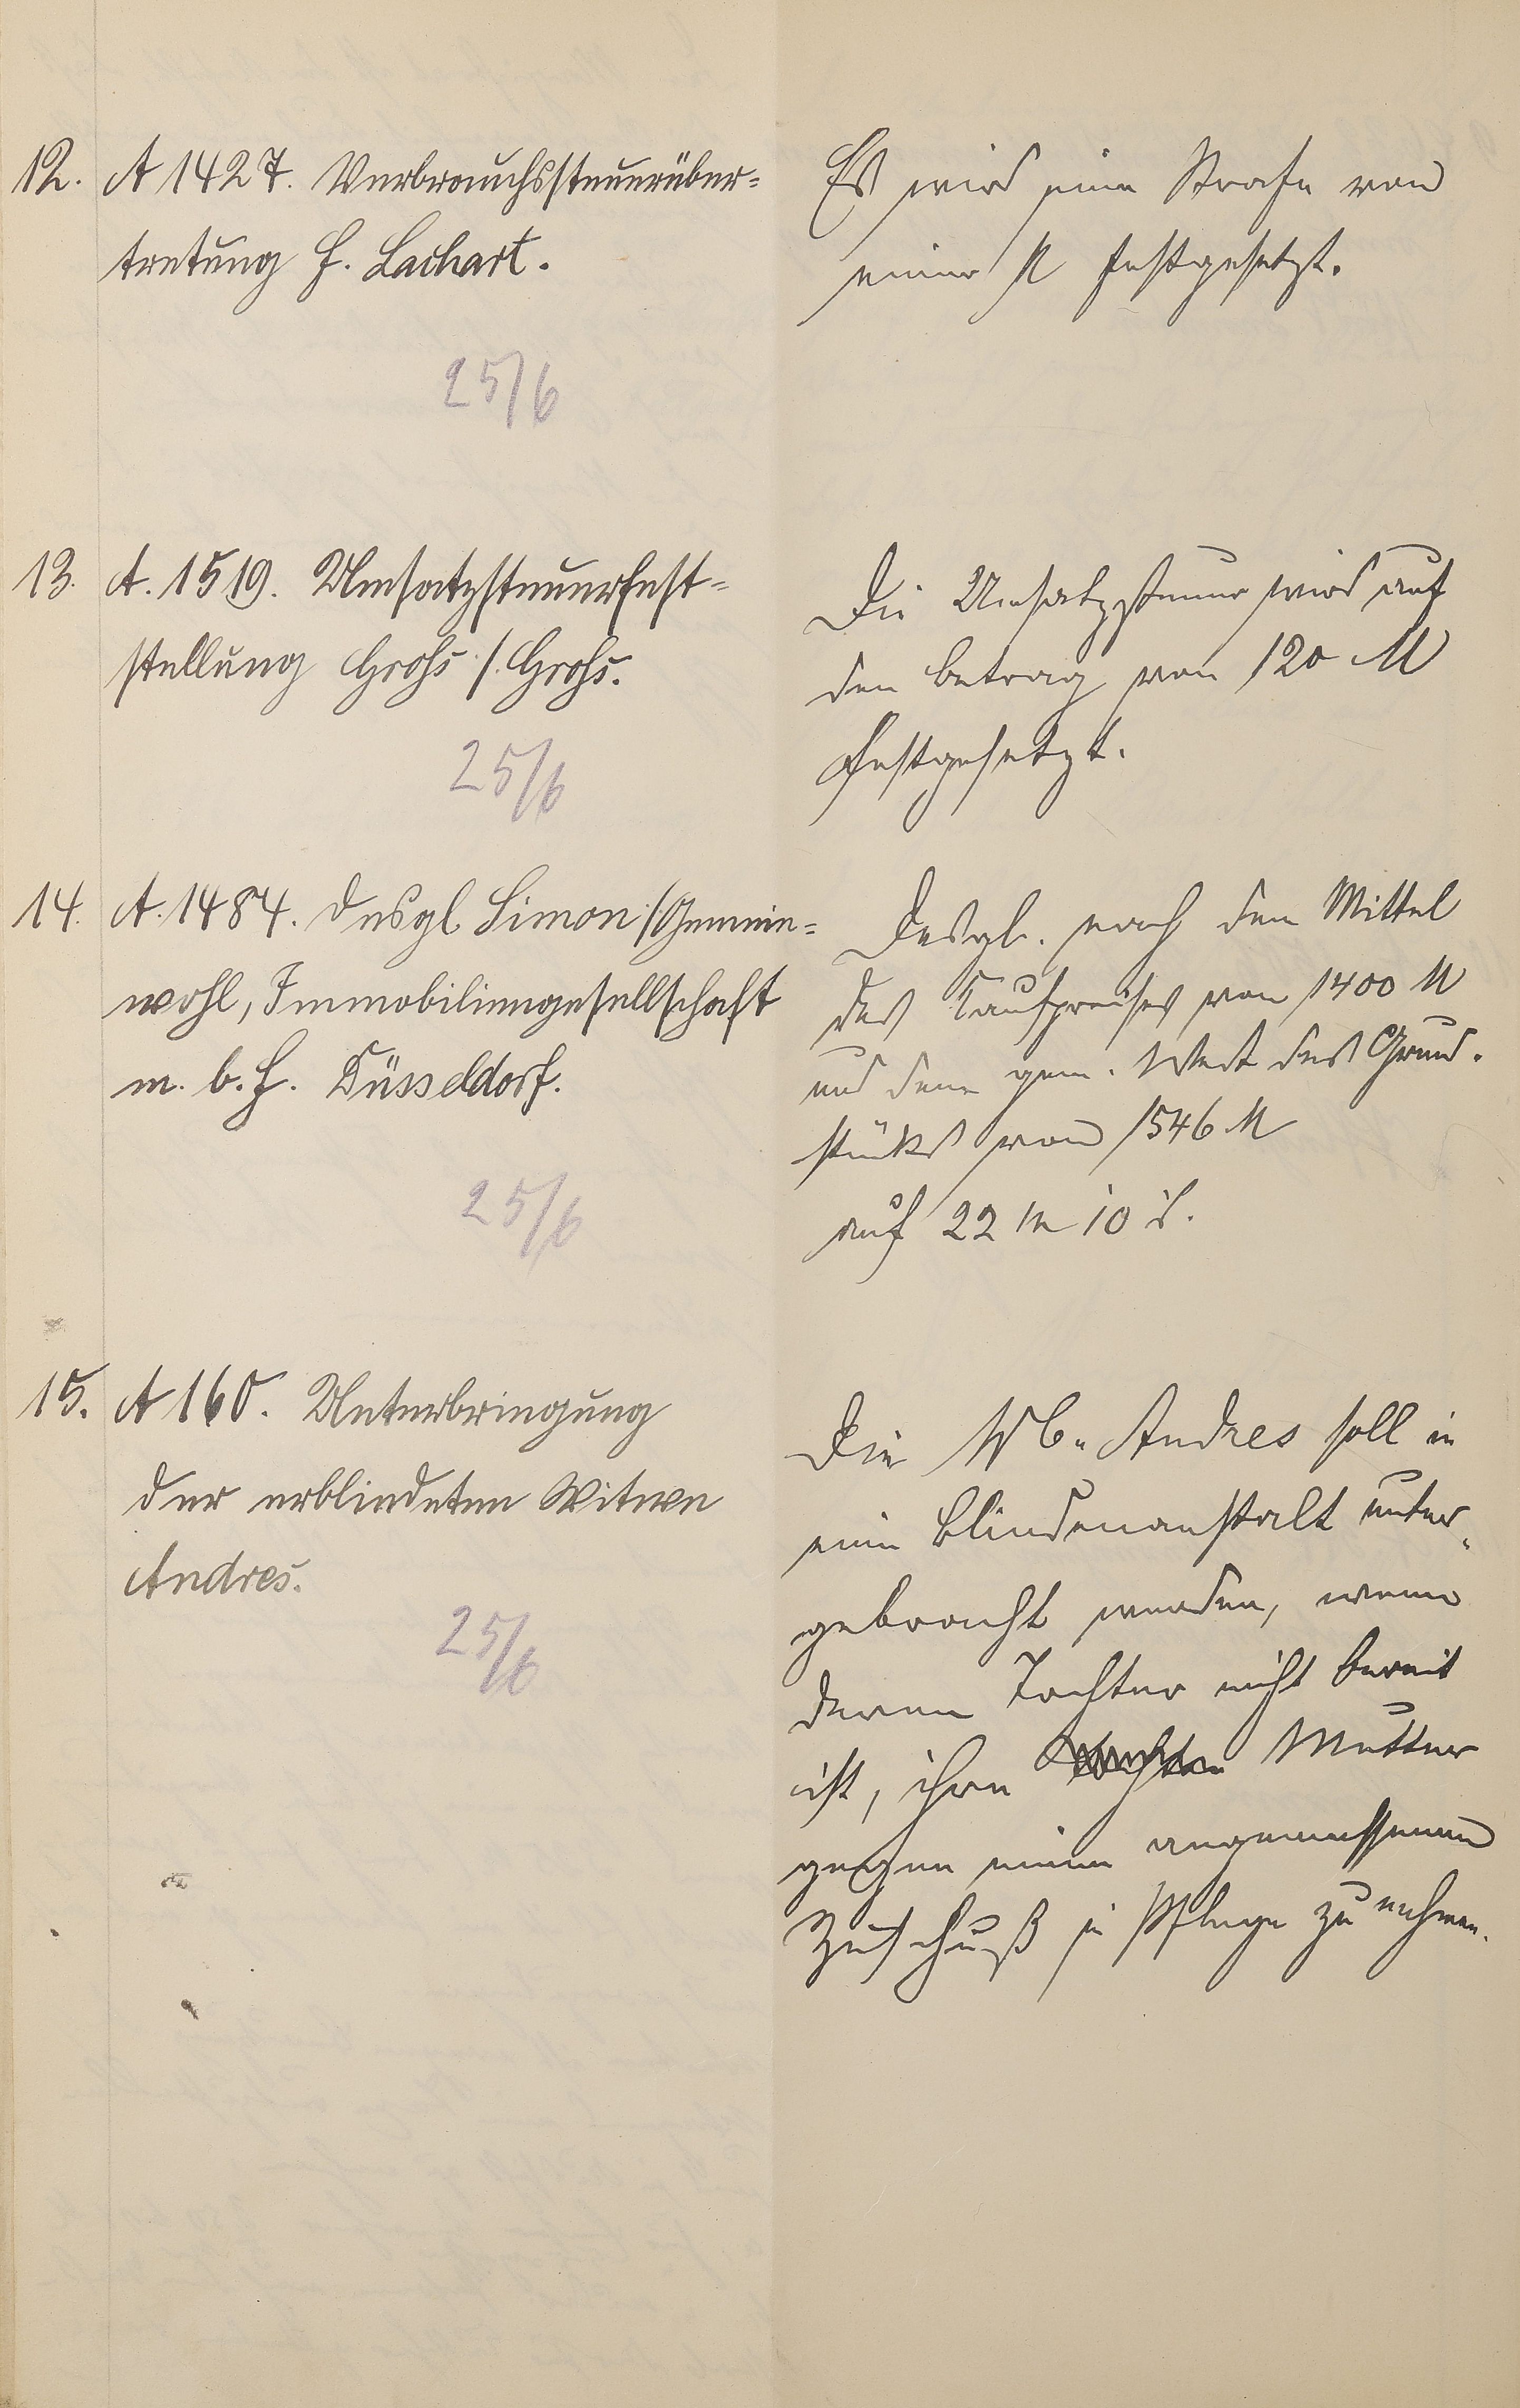 12. A 1427. Verbrauchssteuerüber=
tretung H. Lachart.
25/6
Es wird eine Strafe von
einer M festgesetzt.
13. A. 1519. Umsatzsteuerfest=
stellung Grohs ./. Grohs.
25/6
Die Umsatzsteuer wird auf
den Betrag von 120 M
festgesetzt.
14. A. 1484. desgl. Simon ./. Gemein=
wohl, Immobiliengesellschaft
m. b. H. Düsseldorf.
25/6
Desgl. nach dem Mittel
des Kaufpreises von 1400 M
und dem gem. Wert des Grund-
stücks von 1546 M
auf 22 M 10 d.
15. A 160. Unterbringung
der erblindeten Witwe
Andres.
25/6
Die Andres soll in
eine Blindenanstalt unter-
gebracht werden, wenn
deren Tochter nicht bereit
ist, ihre Mutter
gegen einen angemessenen
Zuschuß in Pflege zu nehmen.